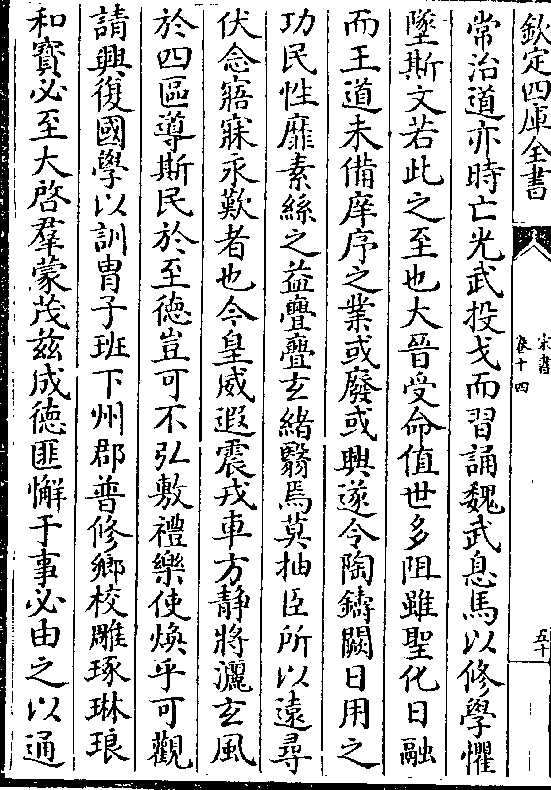 欽定四庫全書
宋書
卷十四
五十
常治道亦時亡光武投戈而習誦魏武息馬以修學懼
墜斯文若此之至也大晉受命值世多阻雖聖化日融
而王道未備庠序之業或廢或興遂令陶鑄闕日用之
功民性靡素絲之益亹亹玄緒翳焉莫抽臣所以遠尋
伏念寤寐永歎者也今皇威遐震戎車方靜將灑玄風
於四區導斯民於至德豈可不弘敷禮樂使煥乎可觀
請興復國學以訓胄子班下州郡普修鄉校雕琢琳琅
和寳必至大啓羣蒙茂兹成德匪懈于事必由之以通